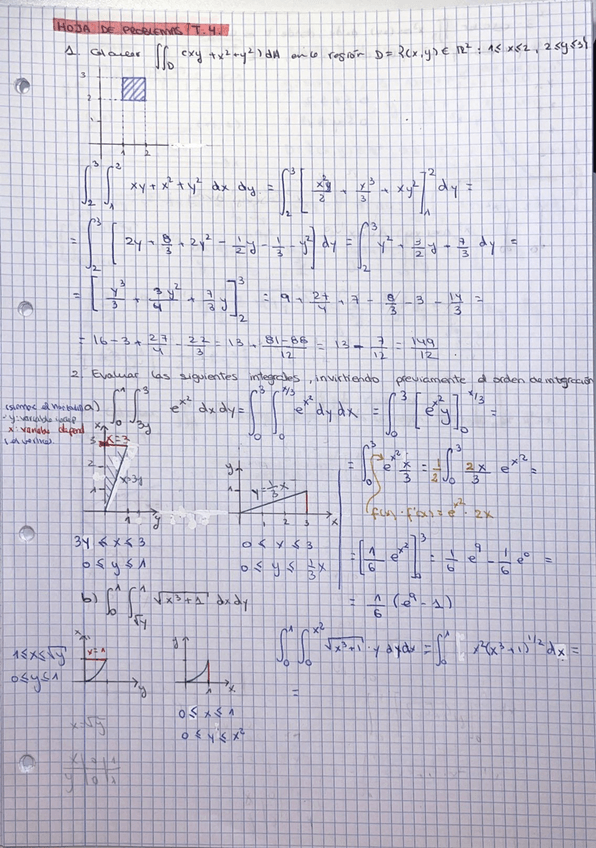 HOJA DE PROBLEMAS T.4.
1. Calcular ∬_D (xy + x² + y²) dA en la región D = {(x,y) ∈ ℝ² : 1 ≤ x ≤ 2, 2 ≤ y ≤ 3}
3
2
1
1 2
∫_2^3 ∫_1^2 xy + x² + y² dx dy = ∫_2^3 [x²y/2 + x³/3 + xy²]_1^2 dy =
= ∫_2^3 [2y + 8/3 + 2y² - 1/2 y - 1/3 - y²] dy = ∫_2^3 y² + 3/2 y + 7/3 dy =
= [y³/3 + 3y²/4 + 7/3 y]_2^3 = 9 + 27/4 + 7 - 8/3 - 3 - 14/3 =
= 16 - 3 + 27/4 - 22/3 = 13 + 81-88/12 = 13 - 7/12 = 149/12.
2. Evaluar las siguientes integrales, invirtiendo previamente el orden de integración
a) ∫_0^1 ∫_3y^3 e^x² dx dy = ∫_0^3 ∫_0^x/3 e^x² dy dx = ∫_0^3 [e^x² y]_0^x/3 =
x: variable depend
x
3 x=3
2
1
x=3y
1 y
y
1
y=1/3 x
1 2 3 x
= ∫_0^3 e^x² x/3 = 1/2 ∫_0^3 2x/3 e^x² =
f(x)·f'(x) = e^x² · 2x
3y ≤ x ≤ 3
0 ≤ y ≤ 1
0 ≤ x ≤ 3
0 ≤ y ≤ 1/3 x
= [1/6 e^x²]_0^3 = 1/6 e^9 - 1/6 e^0 =
= 1/6 (e^9 - 1)
b) ∫_0^1 ∫_√y^1 √x³+1 dx dy
1 ≤ x ≤ √y
0 ≤ y ≤ 1
x
x=1
y
y
1 x
∫_0^1 ∫_0^x² √x³+1 · y dy dx = ∫_0^1 x²(x³+1)^1/2 dx =
=
0 ≤ x ≤ 1
0 ≤ y ≤ x²
x=√y
x 0 1
y 0 1